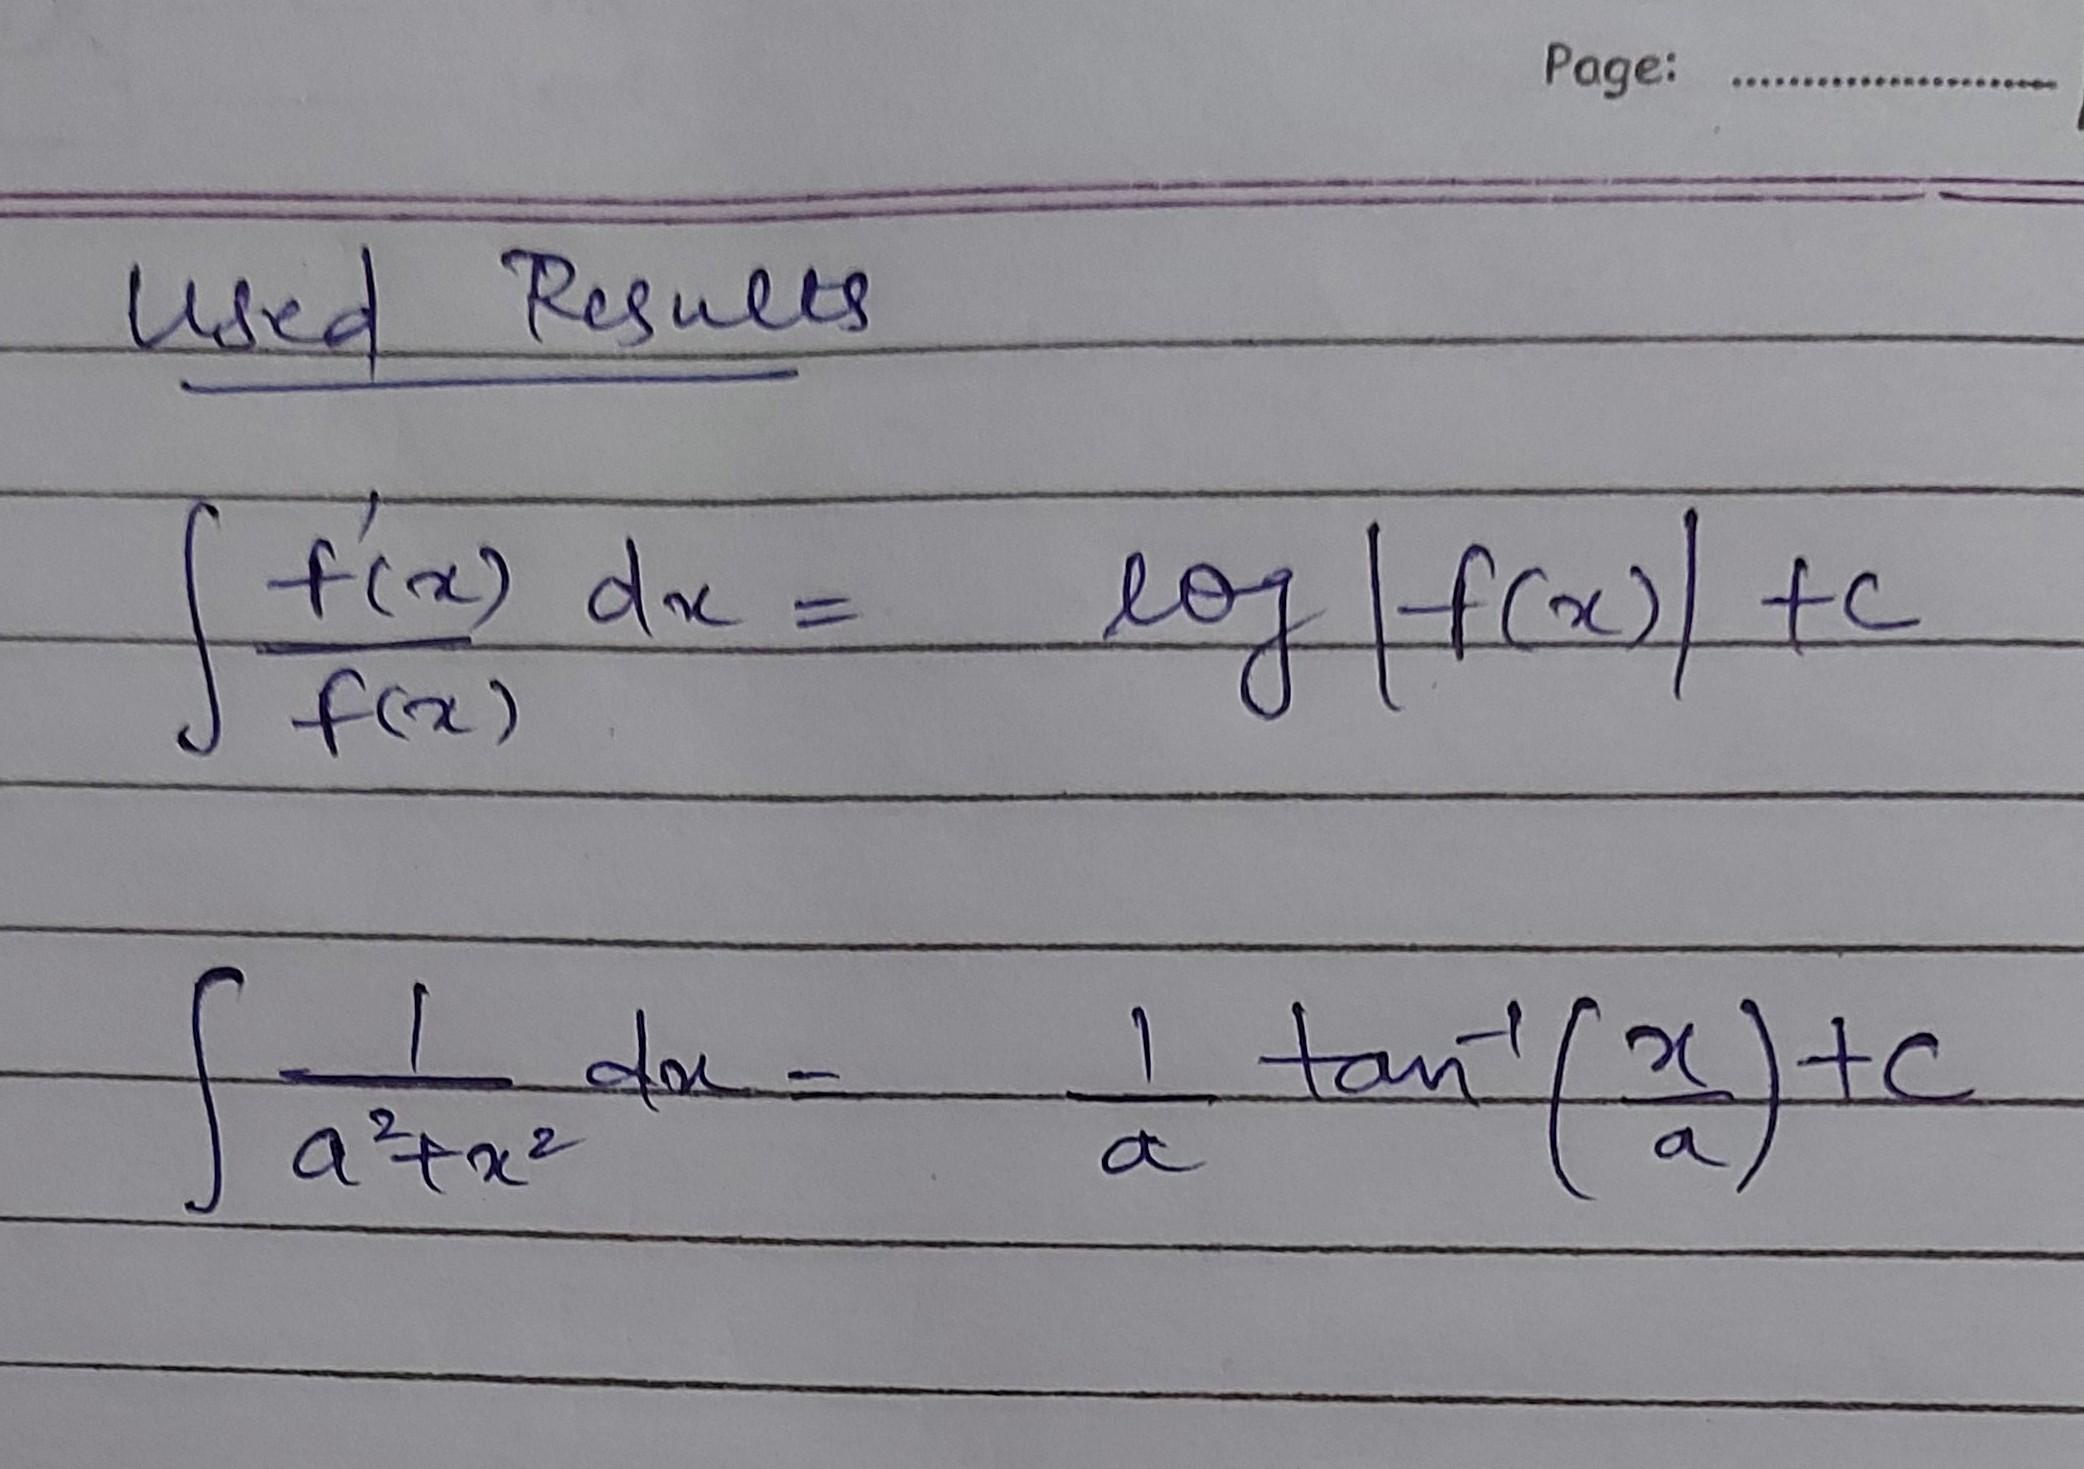 Page: ....................
Used Results
∫ f'(x)/f(x) dx = log |f(x)| + c
∫ 1/(a²+x²) dx = 1/a tan⁻¹(x/a) + c